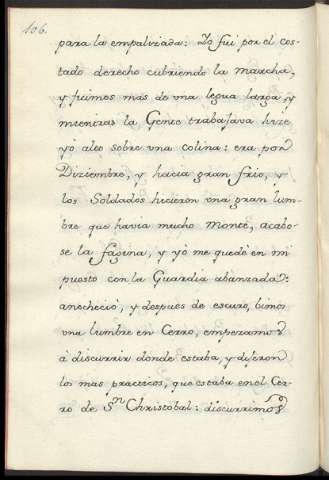 106.
para la empalizada: Yo fui por el cos-
tado derecho cubriendo la marcha,
y fuimos mas de una legua larga, y
mientras la Gente trabajava hize
yò alto sobre una colina: era por
Diziembre, y hacia gran frio, y
los Soldados hicieron una gran lum-
bre que havia mucho monte, acabo-
se la fagina, y yò me quedè en mi
puesto con la Guardia abanzada:
anocheciò, y despues de escuro, bimos
una lumbre en Cerro, empezamos
à discurrir donde estaba, y dijeron
los mas practicos, que estaba en el Cer-
ro de Sn Christobal: discurrimos